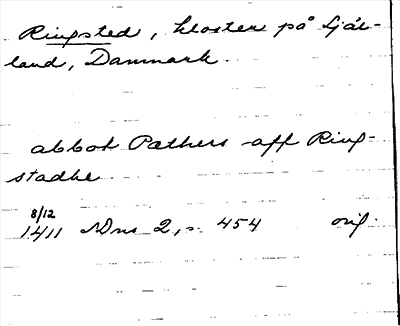 Ringsted, kloster på Själ-
land, Danmark.
abbot Pæthers aff Ring-
stadhe
8/12
1411 SDns 2, s. 454 orig.